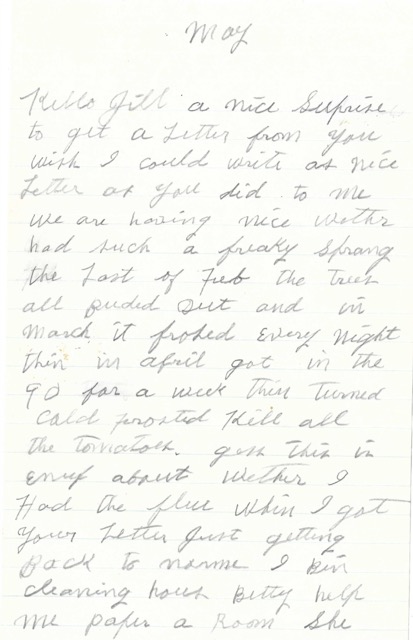 May
Hello Jill a nice Suprise
to get a Letter from you
wish I could write as nice
Letter as you did to me
we are having nice wethr
had such a freaky Sprang
the Last of Feb the trees
all buded out and in
March it frosed Every Night
thin in april got in the
90 for a week thin turned
cold frosted Kill all
the tomatoes. gess this is
enuf about wether I
Had the flue when I got
your Letter Just getting
Back to norme I Bin
cleaning hous Betty help
me paper a Room She